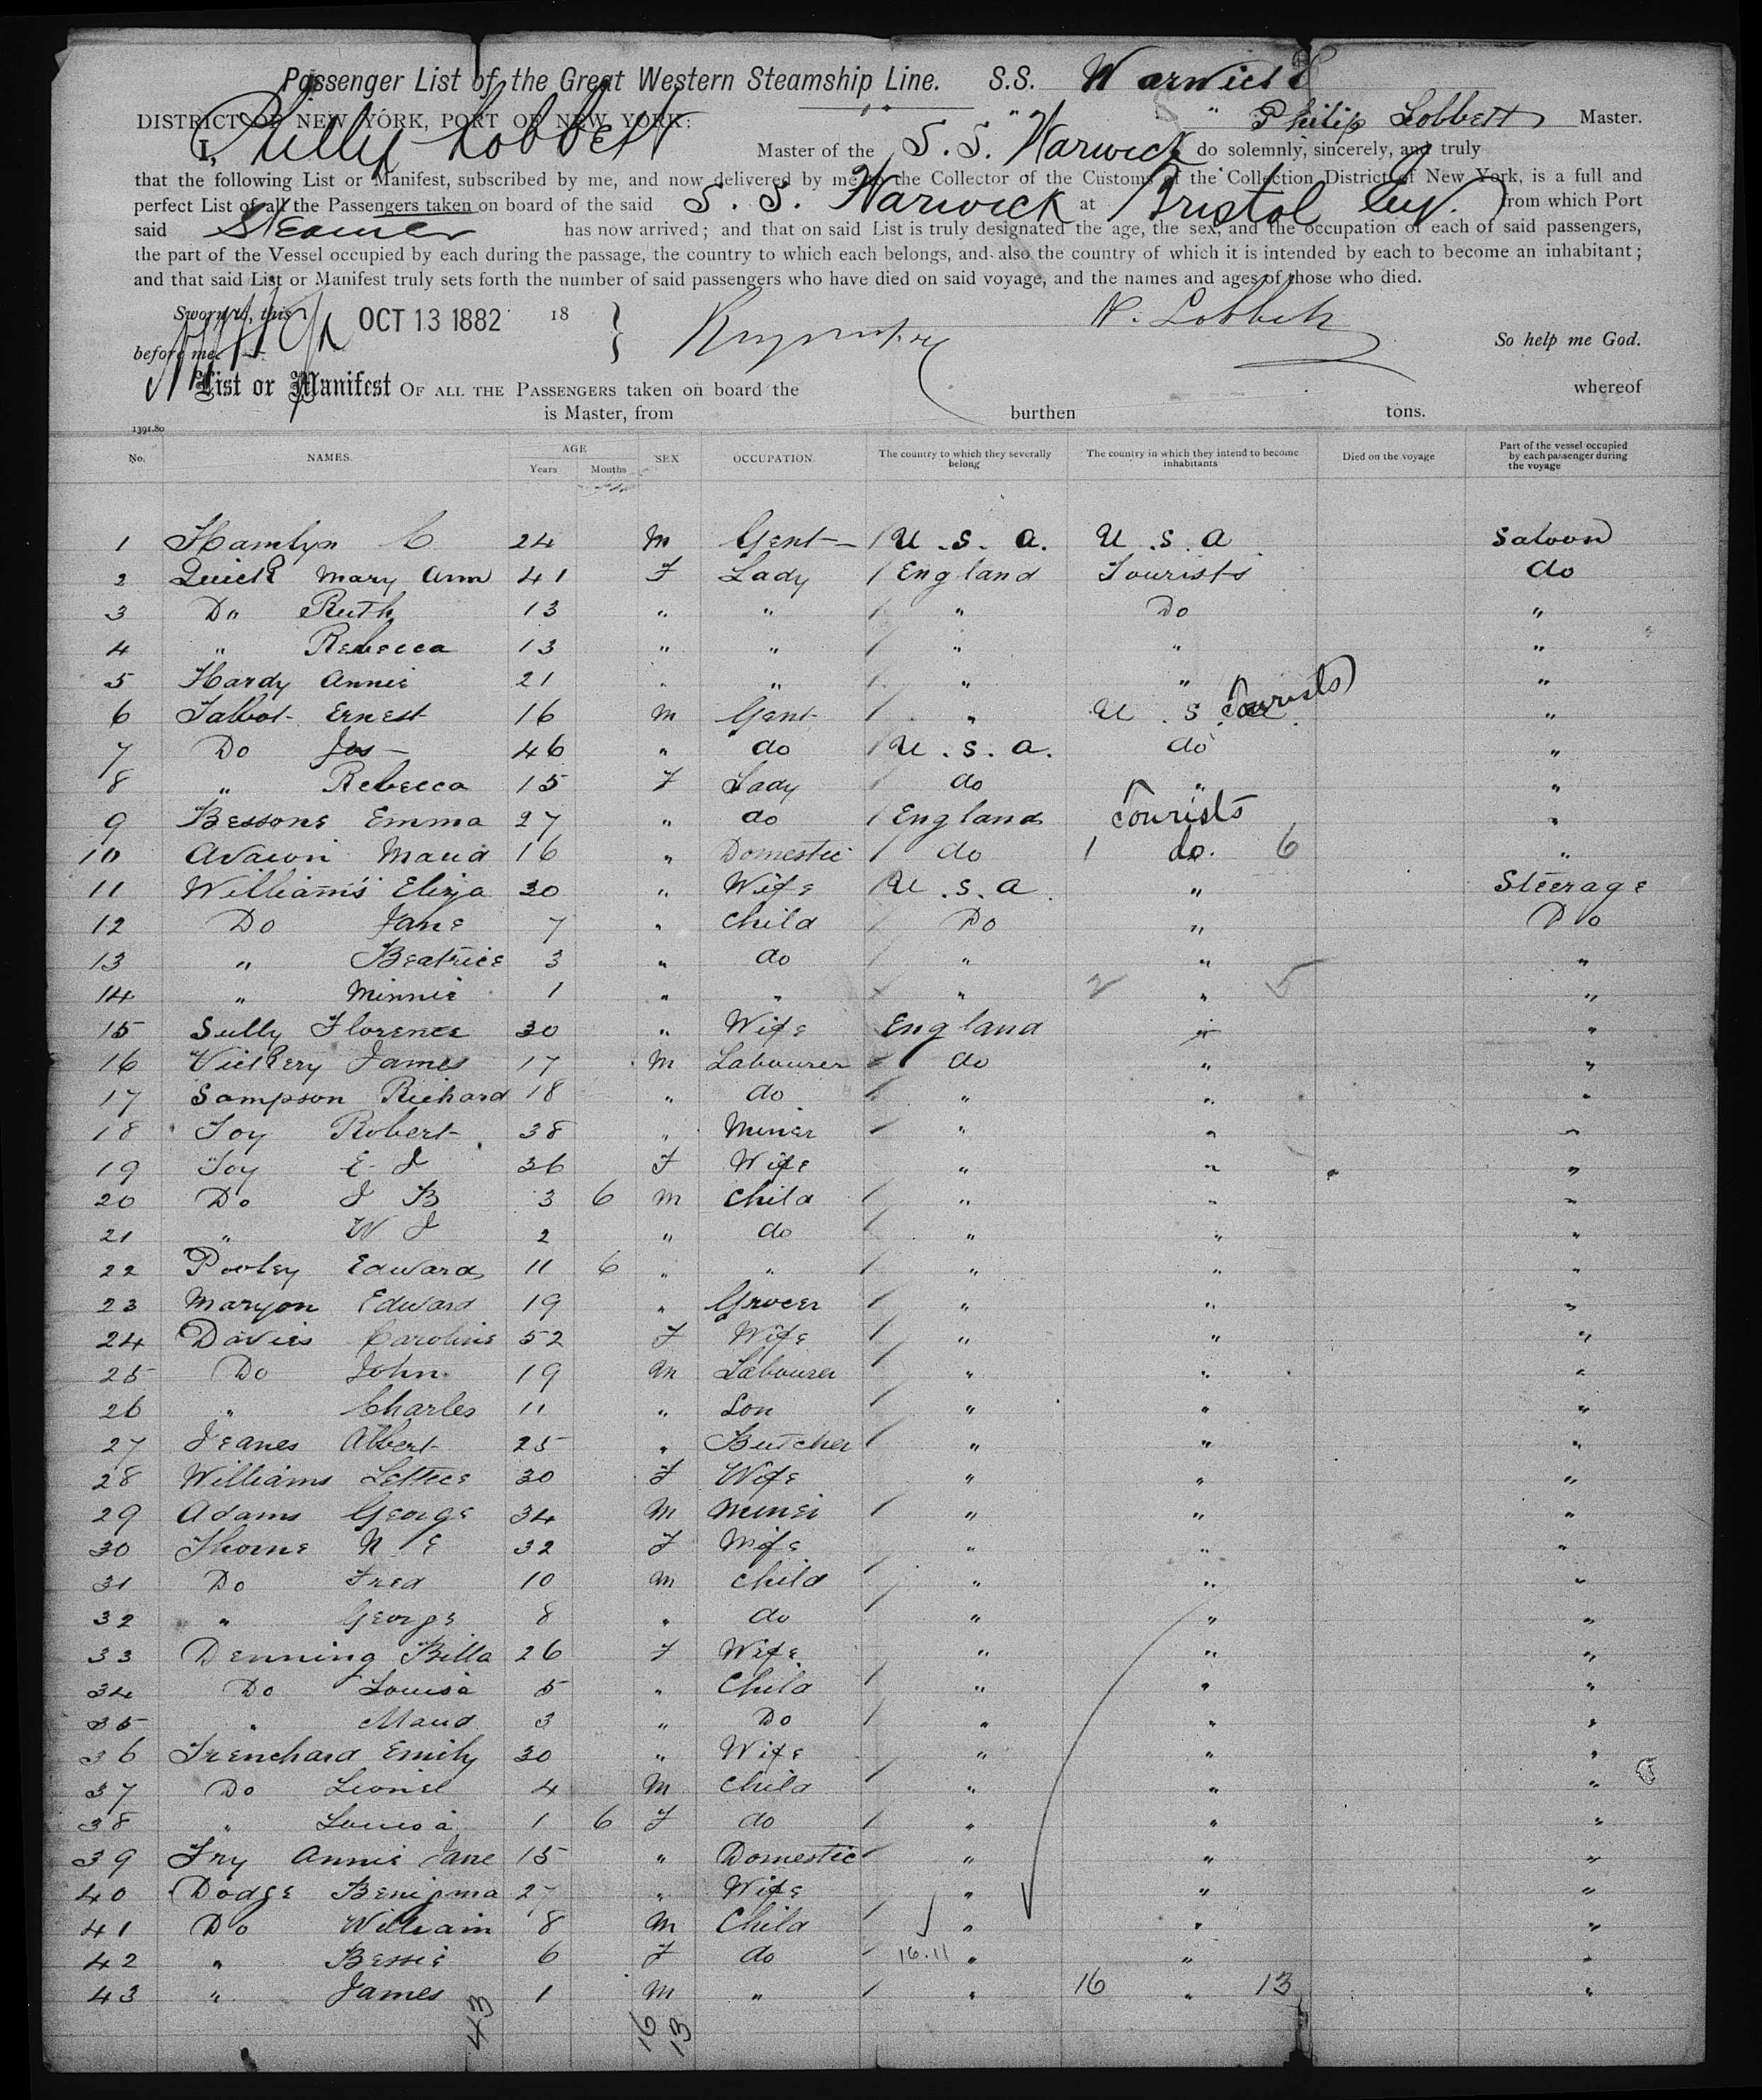 Passenger List of the Great Western Steamship Line. S.S. Warwick
DISTRICT OF NEW YORK, PORT OF NEW YORK: " " Philip Lobbett Master.
I, Philip Lobbett Master of the S.S. Warwick do solemnly, sincerely, and truly
that the following List or Manifest, subscribed by me, and now delivered by me to the Collector of the Customs of the Collection District of New York, is a full and
perfect List of all the Passengers taken on board of the said S.S. Warwick at Bristol from which Port
said Steamer has now arrived; and that on said List is truly designated the age, the sex, and the occupation of each of said passengers,
the part of the Vessel occupied by each during the passage, the country to which each belongs, and also the country of which it is intended by each to become an inhabitant;
and that said List or Manifest truly sets forth the number of said passengers who have died on said voyage, and the names and ages of those who died.
Sworn to, this OCT 13 1882 18 P. Lobbett
before me So help me God.
List or Manifest OF ALL THE PASSENGERS taken on board the whereof
is Master, from burthen tons.
1391.80
No. NAMES. AGE Years Months SEX OCCUPATION. The country to which they severally belong The country in which they intend to become inhabitants Died on the voyage Part of the vessel occupied by each passenger during the voyage
1 Hamlyn C 24 M Gent U.S.A. U.S.A Saloon
2 Quick Mary Ann 41 F Lady England Tourists do
3 Do Ruth 13 " " " Do "
4 " Rebecca 13 " " " " "
5 Hardy Annie 21 " " " " "
6 Talbot Ernest 16 M Gent " U.S. Tourists "
7 Do Jas 46 " do U.S.A. do "
8 " Rebecca 15 F Lady do " "
9 Bessone Emma 27 " do England Tourists "
10 Maud 16 " Domestic do 1 do. 6 "
11 Williams Eliza 30 " Wife U.S.A. " Steerage
12 Do Jane 7 " Child Do " Do
13 " Beatrice 3 " do " " "
14 " Minnie 1 " " " 2 " 5 "
15 Sully Florence 30 " Wife England " "
16 Vickery James 17 M Labourer do " "
17 Sampson Richard 18 " do " " "
18 Toy Robert 38 " Miner " " "
19 Toy E. J 36 F Wife " " "
20 Do J B 3 6 M Child " " "
21 " W J 2 " do " " "
22 Pooley Edward 11 6 " " " " "
23 Maryon Edward 19 " Grocer " " "
24 Davies Caroline 52 F Wife " " "
25 Do John 19 M Labourer " " "
26 " Charles 11 " Son " " "
27 Jeanes Albert 25 " Butcher " " "
28 Williams Lettece 30 F Wife " " "
29 Adams George 34 M Miner " " "
30 Thorne N E 32 F Wife " " "
31 Do Fred 10 M Child " " "
32 " George 8 " do " " "
33 Denning Billa 26 F Wife " " "
34 Do Louisa 5 " Child " " "
35 " Maud 3 " Do " " "
36 Trenchard Emily 30 " Wife " " "
37 Do Lionel 4 M Child " " "
38 " Louisa 1 6 F do " " "
39 Fry Annie Jane 15 " Domestic " " "
40 Dodge Benigma 27 " Wife " " "
41 Do William 8 M Child " " "
42 " Bessie 6 F do 16.11 " " "
43 " James 1 M " " 16 " 13 "
43 16 13